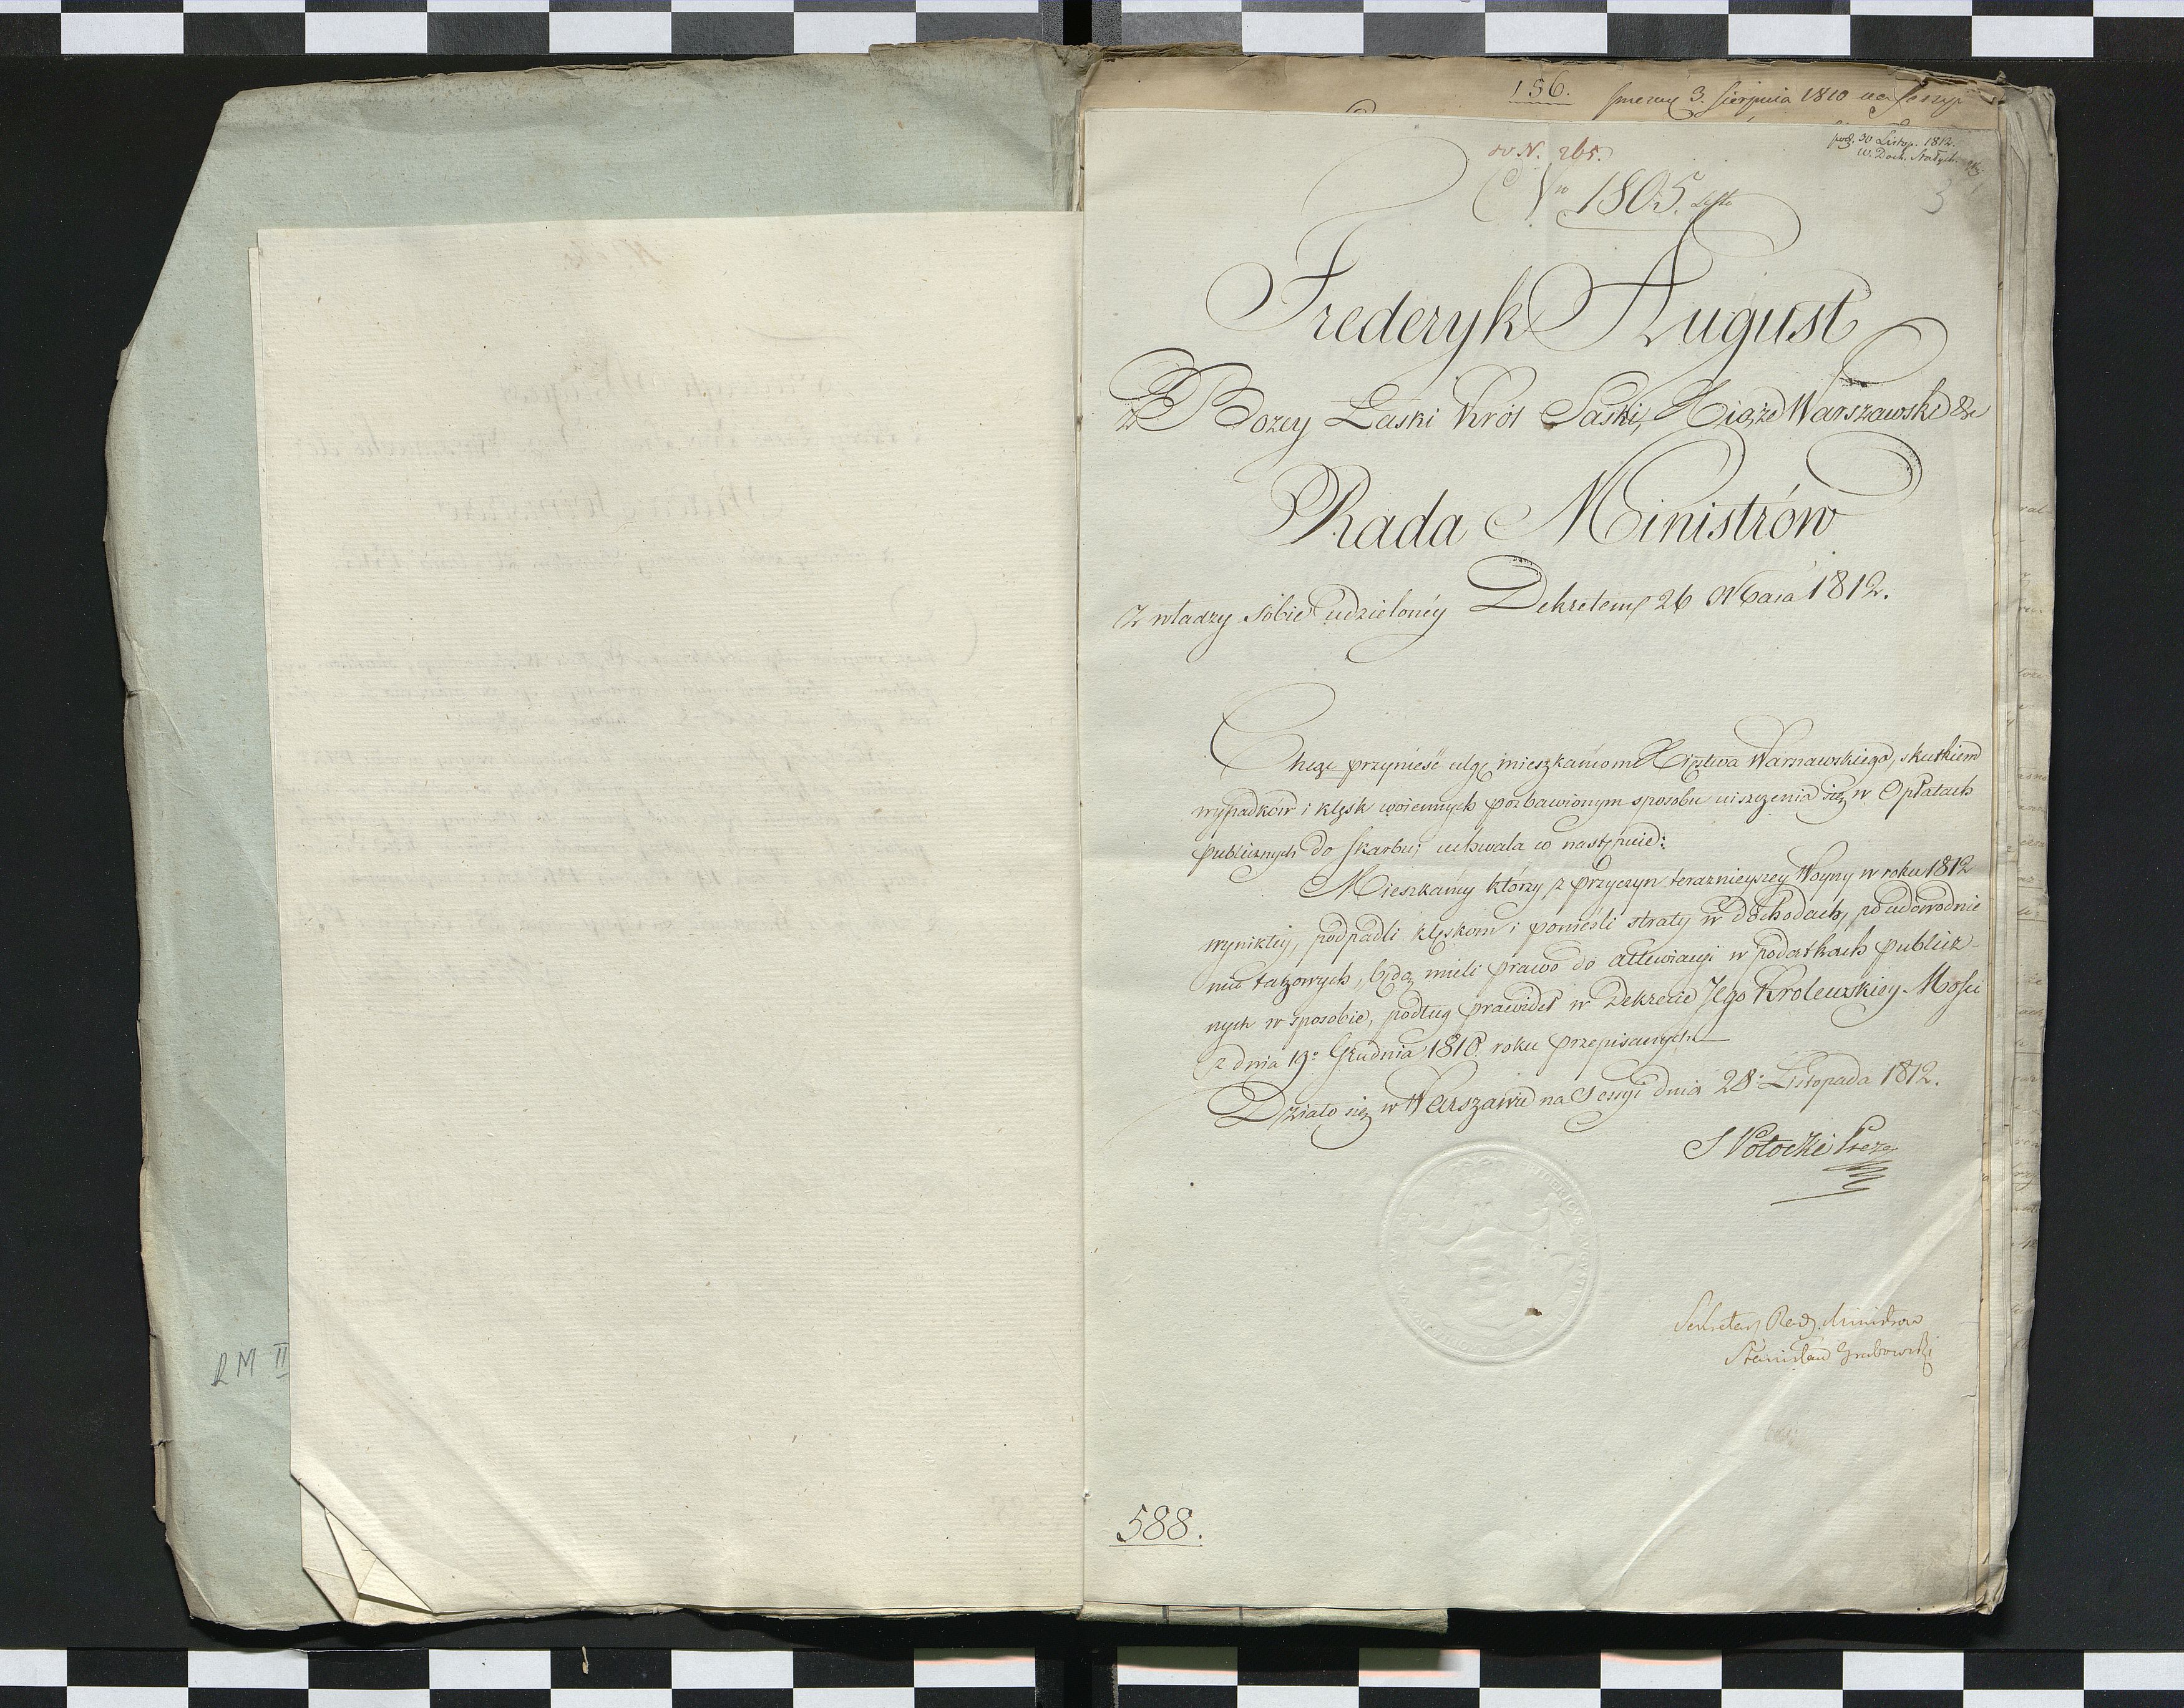 156. 3. Sierpnia 1810
30 Listop. 1812.
w. Doch. Stałych
3
N. 265.
No 1805.
Frederyk August
z Bozey Łaski Król Saski, Xiąże Warszawski &c
Rada Ministrów
Z władzy sobie udzieloney Dekretem 26 Maia 1812.
Chcąc przynieść ulgę mieszkańcom Xięstwa Warszawskiego, skutkiem
wypadków i klęsk woiennych pozbawionym sposobu uiszczenia się w Opłatach
publicznych do Skarbu; uchwala co następuie:
Mieszkańcy którzy z przyczyn teraznieyszey Woyny w roku 1812
wynikłey, podpadli klęskom i ponieśli straty w dochodach, po udowodnie
niu takowych, będą mieli prawo do allewiacyi w podatkach publicz-
nych w sposobie, podług prawideł w Dekrecie Jego Krolewskiey Mości
z dnia 19o Grudnia 1810. roku przepisanych.
Działo się w Warszawie na Sessyi dnia 28o Listopada 1812.
S Potocki Prezes
Sekretarz Rady Ministrow
Stanisław Grabowski
RM II
588.